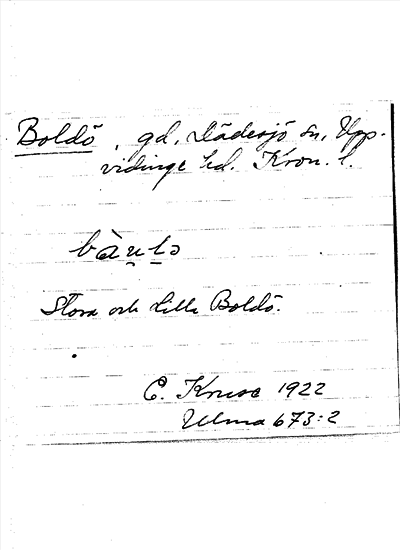 Boldö, gd, Dädesjö sn, Upp-
vidinge hd. Kron. l.
bàu̯lə
Stora och Lilla Boldö.
E. Kruse 1922
Ulma 673:2